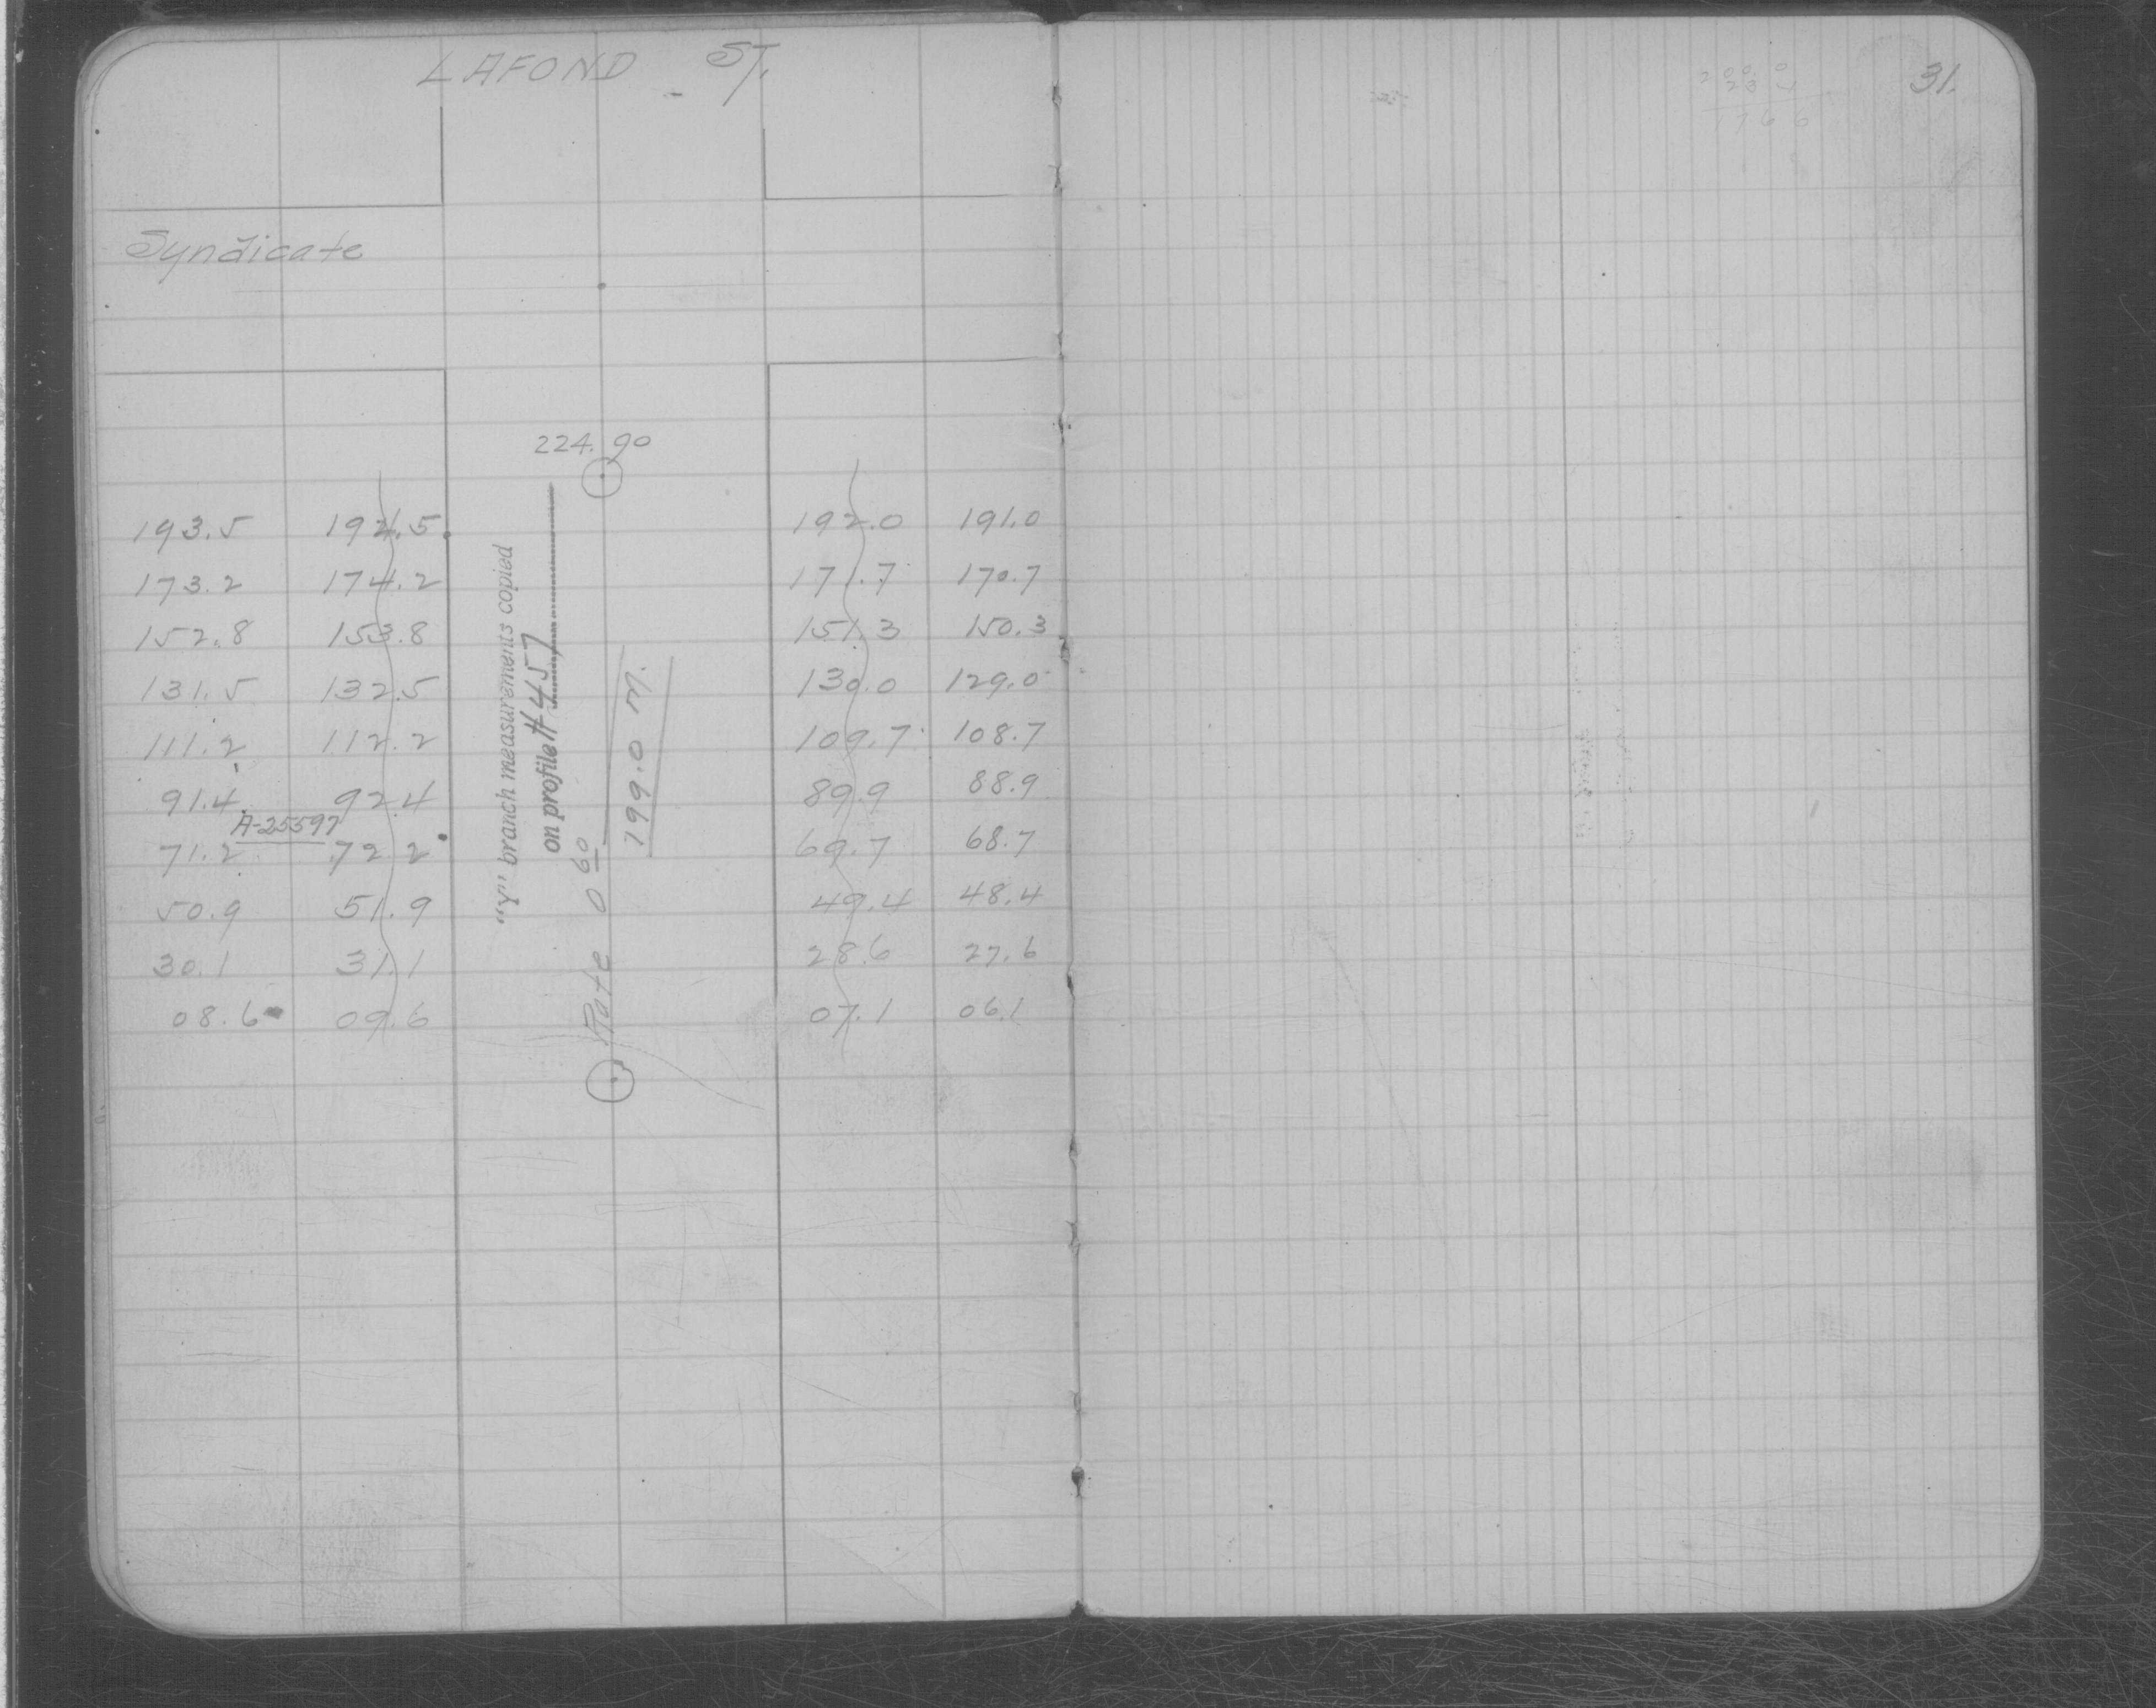 LAFOND ST.
31.
Syndicate
224.90
193.5 194.5 192.0 191.0
173.2 174.2 171.7 170.7
152.8 153.8 151.3 150.3
131.5 132.5 130.0 129.0
111.2 112.2 109.7 108.7
91.4 92.4 89.9 88.9
A-25597
71.2 72.2 69.7 68.7
50.9 51.9 49.4 48.4
30.1 31.1 28.6 27.6
08.6 09.6 07.1 06.1
"Y" branch measurements copied
on profile #457
Rate 0 60
199.0 M.